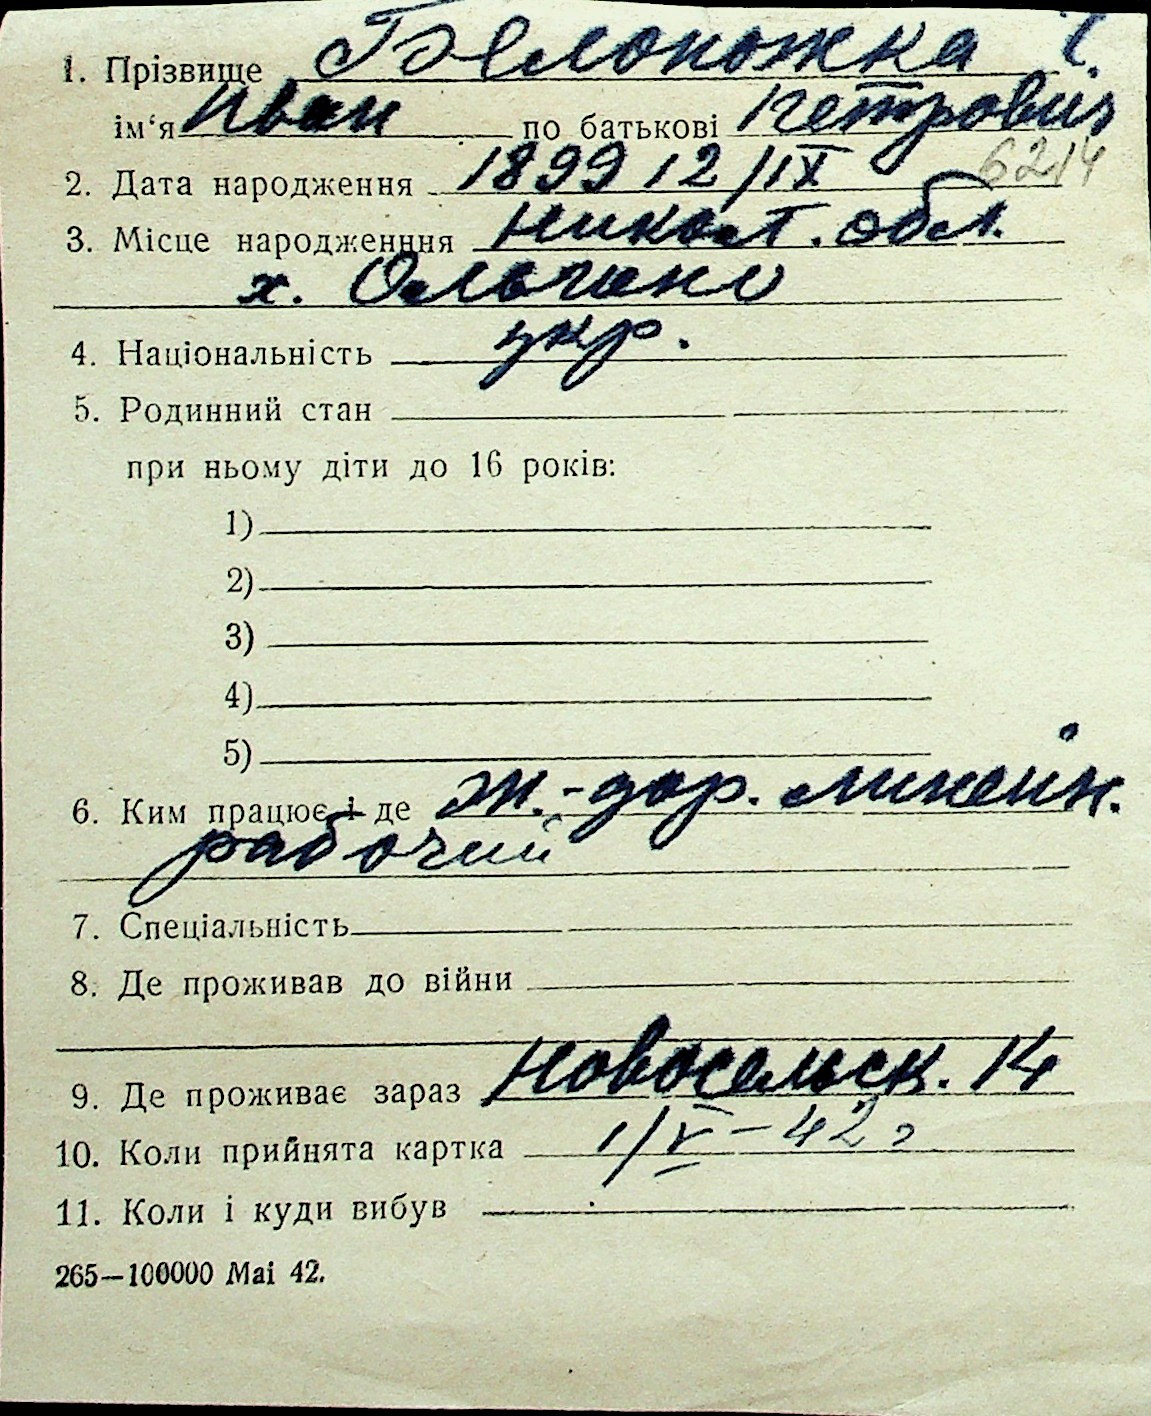 1. Прізвище Белоножка
ім'я Иван по батькові Петрович
2. Дата народження 1899 12/IX 6214
3. Місце народженння Никол. обл.
х.
4. Національність укр.
5. Родинний стан
при ньому діти до 16 років:
1)
2)
3)
4)
5)
6. Ким працює і де ж.-дор. линейн.
рабочий
7. Спеціальність
8. Де проживав до війни
9. Де проживає зараз Новосельск. 14
10. Коли прийнята картка 1/V-42 г
11. Коли і куди вибув
265—100000 Mai 42.